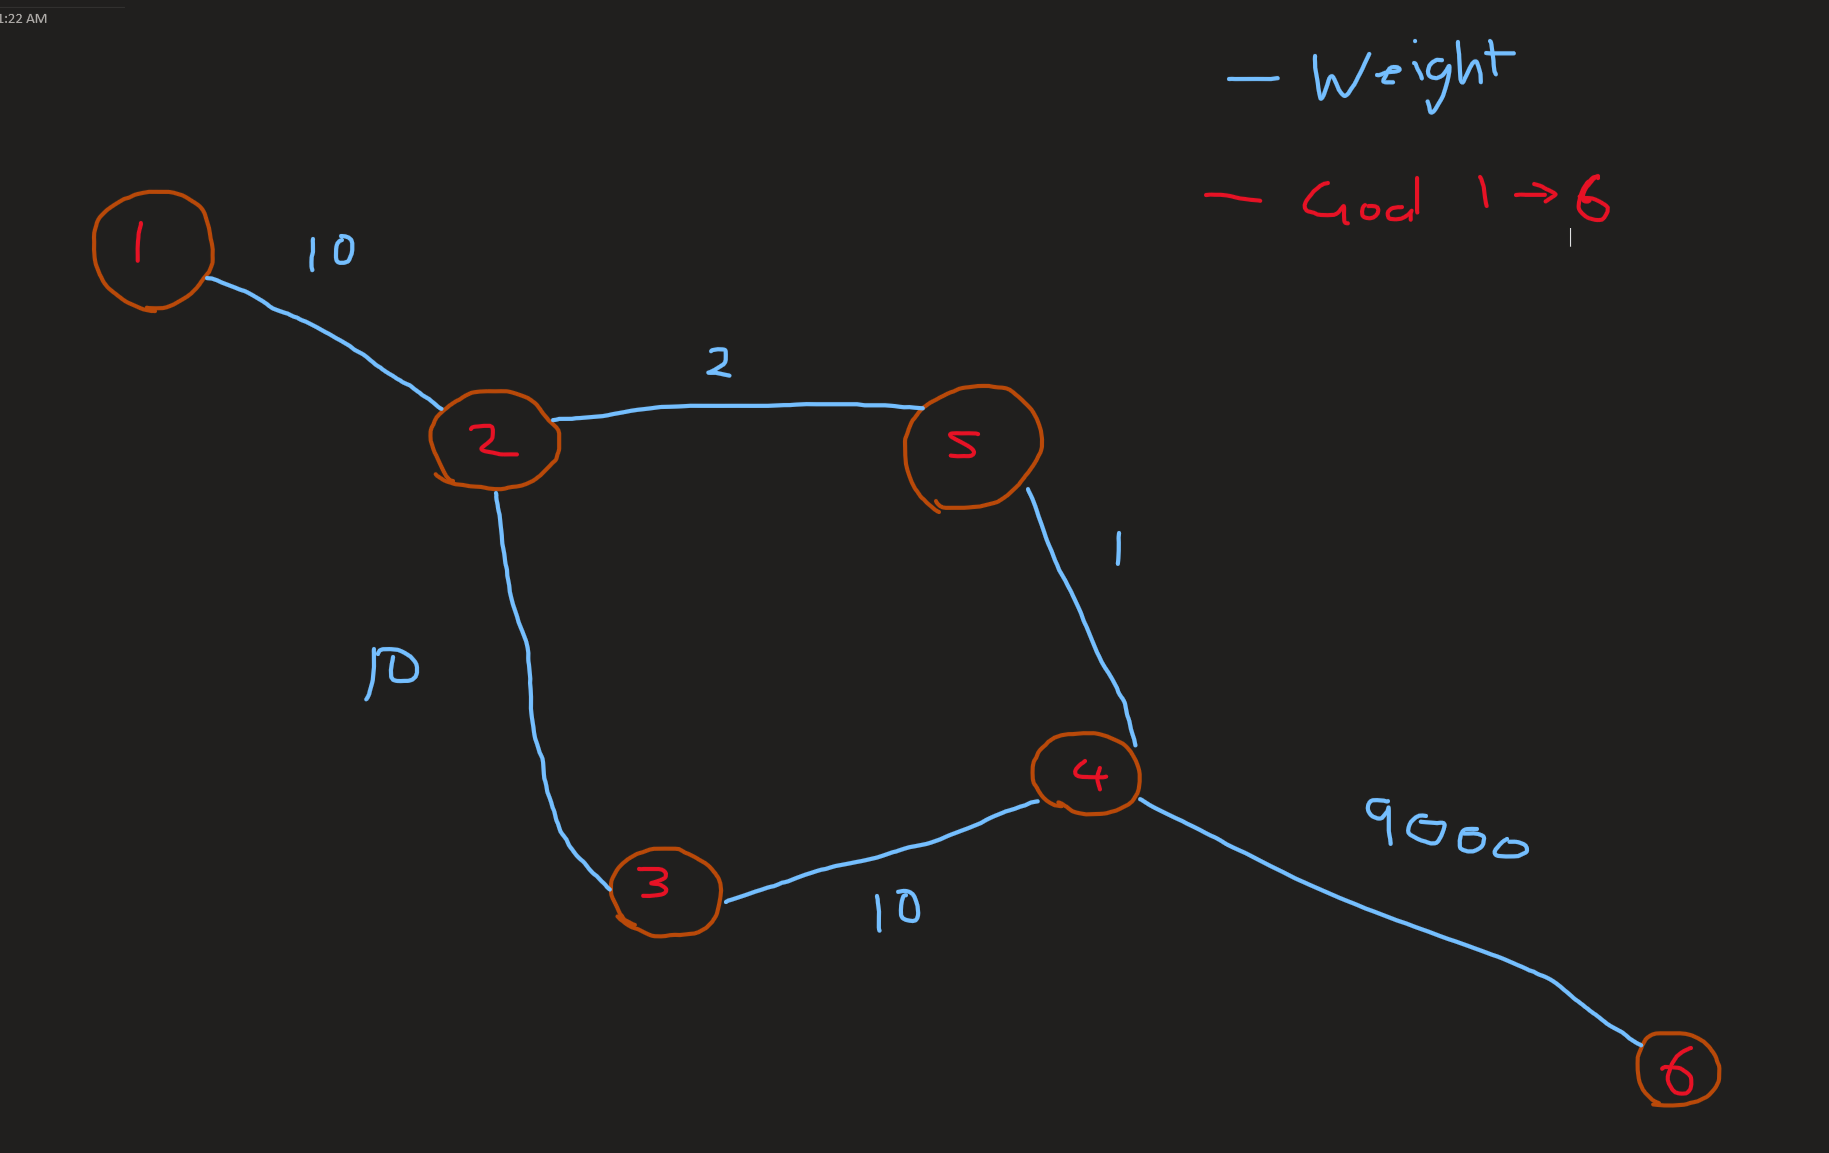 1:22 AM
— Weight
— Goal 1 → 6
1
10
2
2
5
1
10
4
9000
3
10
6